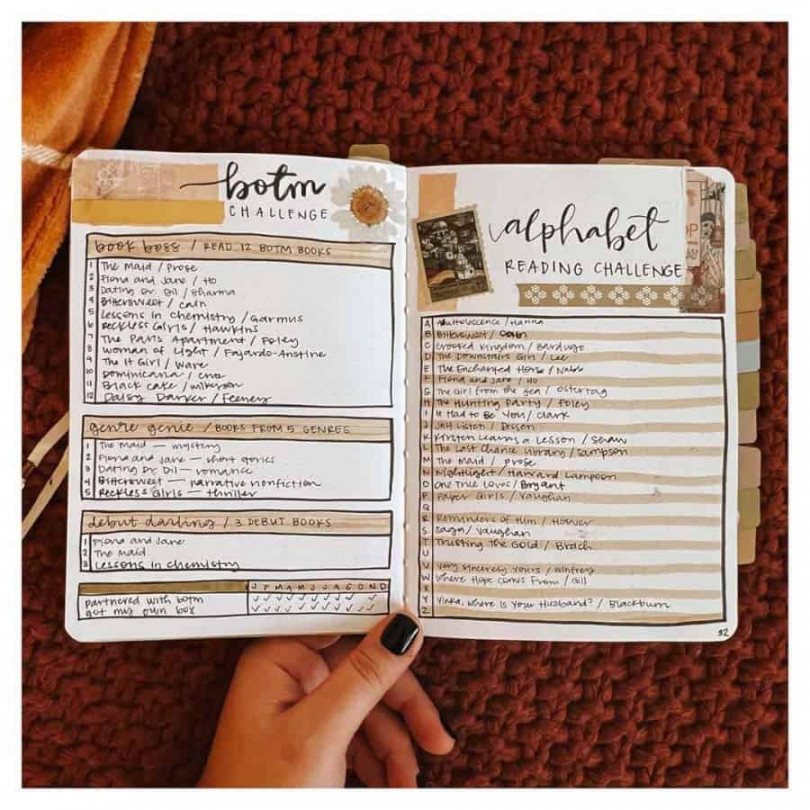 botm
CHALLENGE
book boss / READ 12 BOTM BOOKS
1 The Maid / Prose
2 Fiona and Jane / Ho
3 Dating Dr. Dil / Sharma
4 Bittersweet / Cain
5 Lessons in Chemistry / Garmus
6 Reckless Girls / Hawkins
7 The Paris Apartment / Foley
8 Woman of Light / Fajardo-Anstine
9 The It Girl / Ware
10 Dominicana / Cruz
11 Black Cake / Wilkerson
12 Daisy Darker / Feeney
genre genie / BOOKS FROM 5 GENRES
1 The Maid — mystery
2 Fiona and Jane — short stories
3 Dating Dr. Dil — romance
4 Bittersweet — narrative nonfiction
5 Reckless Girls — thriller
debut darling / 3 DEBUT BOOKS
1 Fiona and Jane
2 The Maid
3 Lessons in Chemistry
J F M A M J J A S O N D
partnered with botm
got my own box
alphabet
READING CHALLENGE
A Adultolescence / Hanna
B Bittersweet / Cain
C Crooked Kingdom / Bardugo
D The Downstairs Girl / Lee
E The Enchanted Horse / Nabb
F Fiona and Jane / Ho
G The Girl from the Sea / Ostertag
H The Hunting Party / Foley
I It Had to Be You / Clark
J Just Listen / Dessen
K Kirsten Learns a Lesson / Shaw
L The Last Chance Library / Sampson
M The Maid / Prose
N Nightlight / Harvard Lampoon
O One True Loves / Bryant
P Paper Girls / Vaughan
Q
R Reminders of Him / Hoover
S Saga / Vaughan
T Trusting the Gold / Brach
U
V Very Sincerely Yours / Winfrey
W Where Hope Comes From / Gill
X
Y Yinka, Where Is Your Huzband? / Blackburn
Z
92